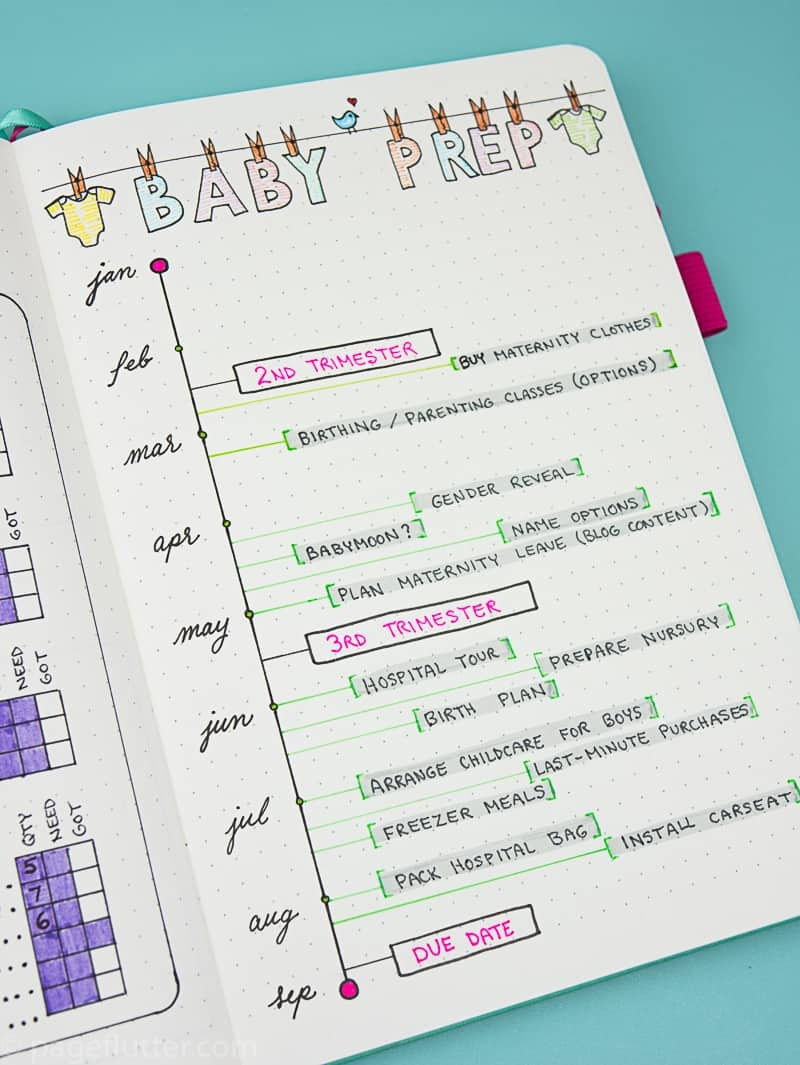 BABY PREP
jan
feb
2ND TRIMESTER
BUY MATERNITY CLOTHES
mar
BIRTHING / PARENTING CLASSES (OPTIONS)
apr
GENDER REVEAL
BABYMOON?
NAME OPTIONS
PLAN MATERNITY LEAVE (BLOG CONTENT)
may
3RD TRIMESTER
HOSPITAL TOUR
PREPARE NURSURY
jun
BIRTH PLAN
ARRANGE CHILDCARE FOR BOYS
LAST-MINUTE PURCHASES
jul
FREEZER MEALS
PACK HOSPITAL BAG
INSTALL CARSEAT
aug
DUE DATE
sep
GOT
NEED GOT
QTY NEED GOT
5
7
6
© pageflutter.com